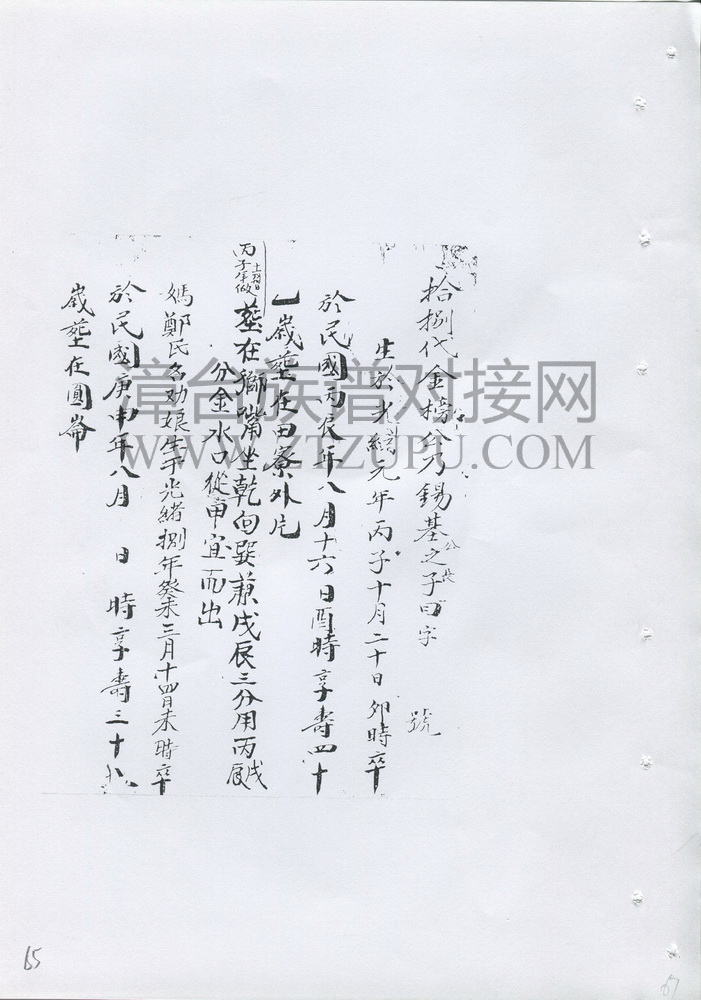 拾捌代金榜公乃錫基公之子曰字 號
生於光緒元年丙子十月二十日卯時卒
於民國丙辰年八月十六日酉時享壽四十
一歲塟在田寮外片
丙子年做
塟在獅嘴坐乾向巽兼戌辰三分用丙戌丙辰
分金水口從申宜而出
媽鄭氏名劝娘生于光緒捌年癸未三月十四日未時卒
於民國庚申年八月 日 時享壽三十八
歲塟在圓崙
章台族谱对接网
WWW.ZTZUPU.COM
65
67